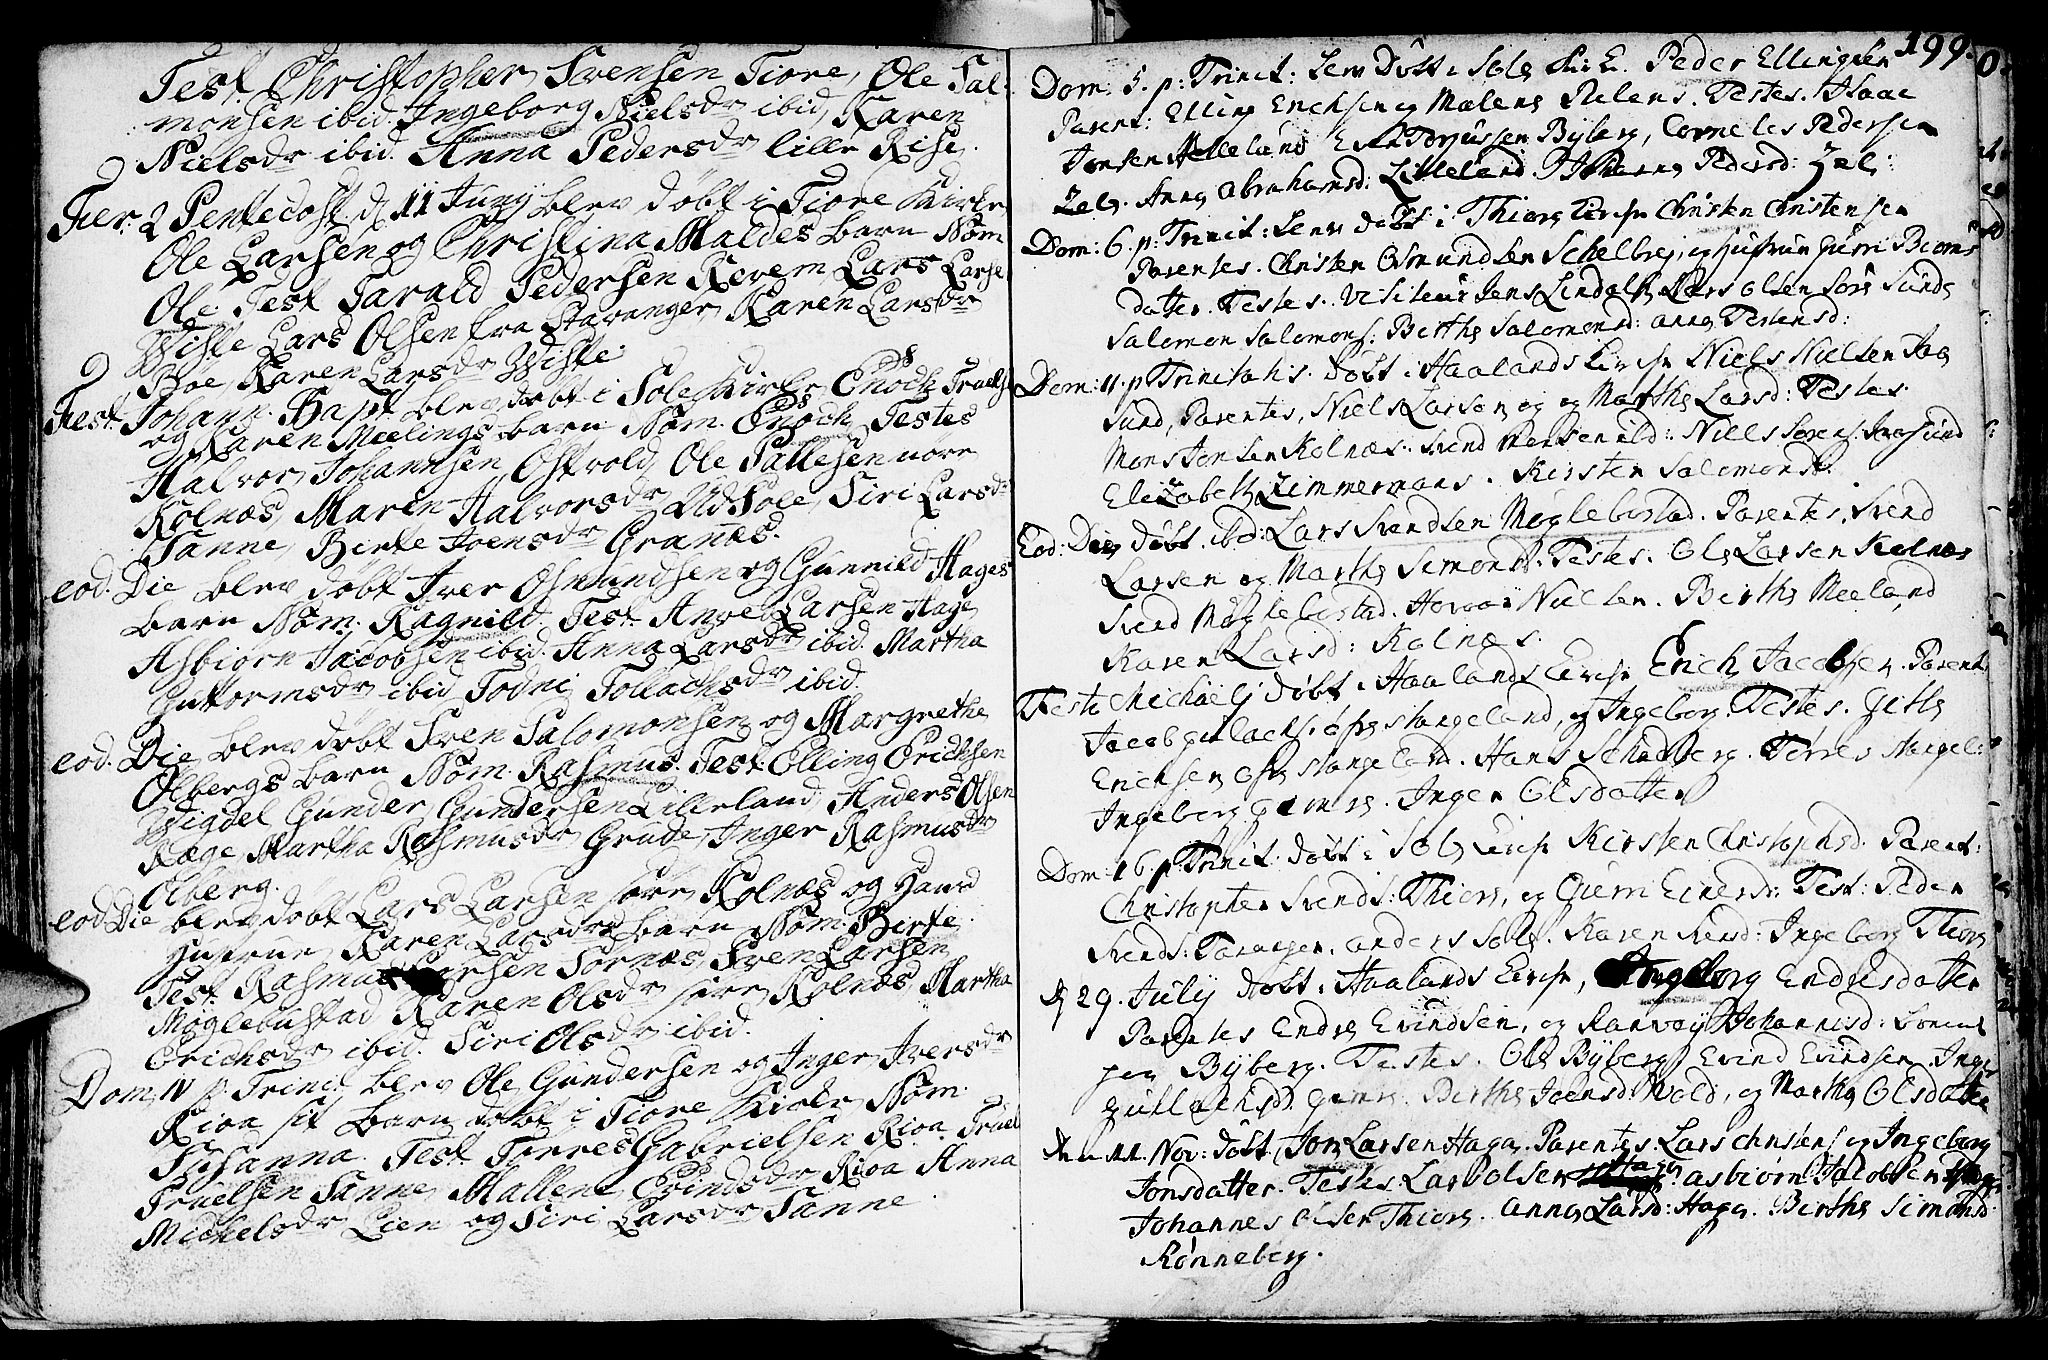 Test. Christopher Svensen Tiore, Ole Sal-
monsen ibid. Ingeborg Nielsdr ibid, Karen
Nielsdr ibid. Anna Pedersdr lille Rise.
Fer. 2 Pentecost. d 11 Juny blev døbt i Tiore Kirke
Ole Larsen og Christina Maldes barn Nom
Ole. Test. Tarald Pedersen Revem, Lars Larse
Wiste Lars Olsen fra Stavanger, Karen Larsdr
Boe, Karen Larsdr Wiste.
Fest. Johann. Bapt. blev døbt i Sole Kirke Enoch Truels
og Karen Meelings barn Nom. Enoch, Testes
Halvor Johannsen Ostvold, Ole Pallesen nore
Kolnæs, Maren Halvorsdr Ud Sole, Siri Larsdr
Tanne, Birte Joensdr Granæs.
eod. Die blev døbt Iver Osmundsen og Gunnild Hages
barn Nom. Ragnild. Test. Larsen Hage
Asbiørn Jacobsen ibid. Anna Larsdr ibid. Martha
Guttormsdr ibid Todni Tollachsdr ibid.
eod. Die blev døbt Sven Salomonsen og Margrethe
Ølbergs barn Nom. Rasmus. Test. Elling Erichsen
Wigdel Gunder Gundersen Lilleland, Anders Olsen
Ræge Martha Rasmusdr Grude, Inger Rasmusdr
Ølberg.
eod Die blev døbt Lars Larsen søre Kolnæs og Hans
Hustrue Karen Larsdrs barn Nom. Birte
Test. Rasmus Larsen Sørnæs, Sven Larsen
Møglebustad Karen Olsdr søre Kolnæs, Martha
Erichsdr ibid. Siri Olsdr ibid.
Dom. IV p. Trinit. blev Ole Gundersen og Inger Iversdr
Rioa sit barn døbt i Tiore Kirke Nom.
Susanna. Test. Torres Gabrielsen Rioa. Truel
Truelsen Tanne, Mallene Evindsdr Rioa Anna
Michelsdr Lien og Siri Larsdr Tanne.
199.
Dom: 5. p: Trinit: blev Døbt i Sole Peder Ellingsen
Parent: Elling Erichsen og Malene Testes. Isaac
Jonsen Helleland Torjussen Byberg, Corneles Pedersen
Zele. Anna Abrahamsd: Lilleland. Johanna Pedersd: Zele:
Dom: 6. p: Trinit: døbt i Thiore Kirche Christen Christensen
Parentes. Christen Osmundsen Schelbrej, og Hustrue Gurri Biorns
datter. Testes. Visiteur Jens Lindahl, Lars Olsen Søre Sunde
Salomon Salomons: Berthe Salomonsd: Anna Testensd:
Dom: 11. p Trinitatis. Døbt i Haalands Kirche Niels Nielsen Jaa
sund, Parentes, Niels Larsen og Marthe Larsd: Testes.
Mons Jonsen Kolnæs. Svend Niels Sørens: Jaasund
Elizabeth Zimmermans. Kirsten Salomonsd.
Eod: Die Døbt. ibid: Lars Svendsen Møglebustad. Parentes. Svend
Larsen og Marthe Simonsd. Testes. Ole Larsen Kolnæs
Svend Møglebustad. Nielsen. Berthe Meeland,
Karen Larsd: Kolnæs.
Festo Michaelj døbt i Haalands Kirche Erich Jacobsen. Parent:
Jacob Gulachs: øfre Stangeland, og Ingeborg. Testes. Githe
Erichsen øfre Stangeland. Hans Schadberg. Torres
Ingeborg Inger Olsdatter
Dom: 16 p: Trinit. Døbt i Sole Kirche Kirsten Christophersd. Parent:
Christopher Svends: Thiore, og Guerri Einersd: Test: Peder
Svends: Anders Sole. Karen Svend: Ingeborg Thiore
d 29. July døbt i Haalands Kirche, Ingeborg Endresdatter
Parentes Endre Evindsen, og Ranvoy Johannsd:
Byberg. Testes. Ole Byberg, Evind Evindsen, Inge
Gullachsd. Berthe Joensd. Wold, og Marthe Olsdatter
11. Nov: døbt Jon Larsen Haga. Parentes. Lars Christens: og Ingeborg
Jonsdatter. Testes Lars Olsen Haga asbiorn Jacobsen
Johannes Olsen Thiore. Anna Larsd: Haga. Berthe Simonsd.
Rønneberg.